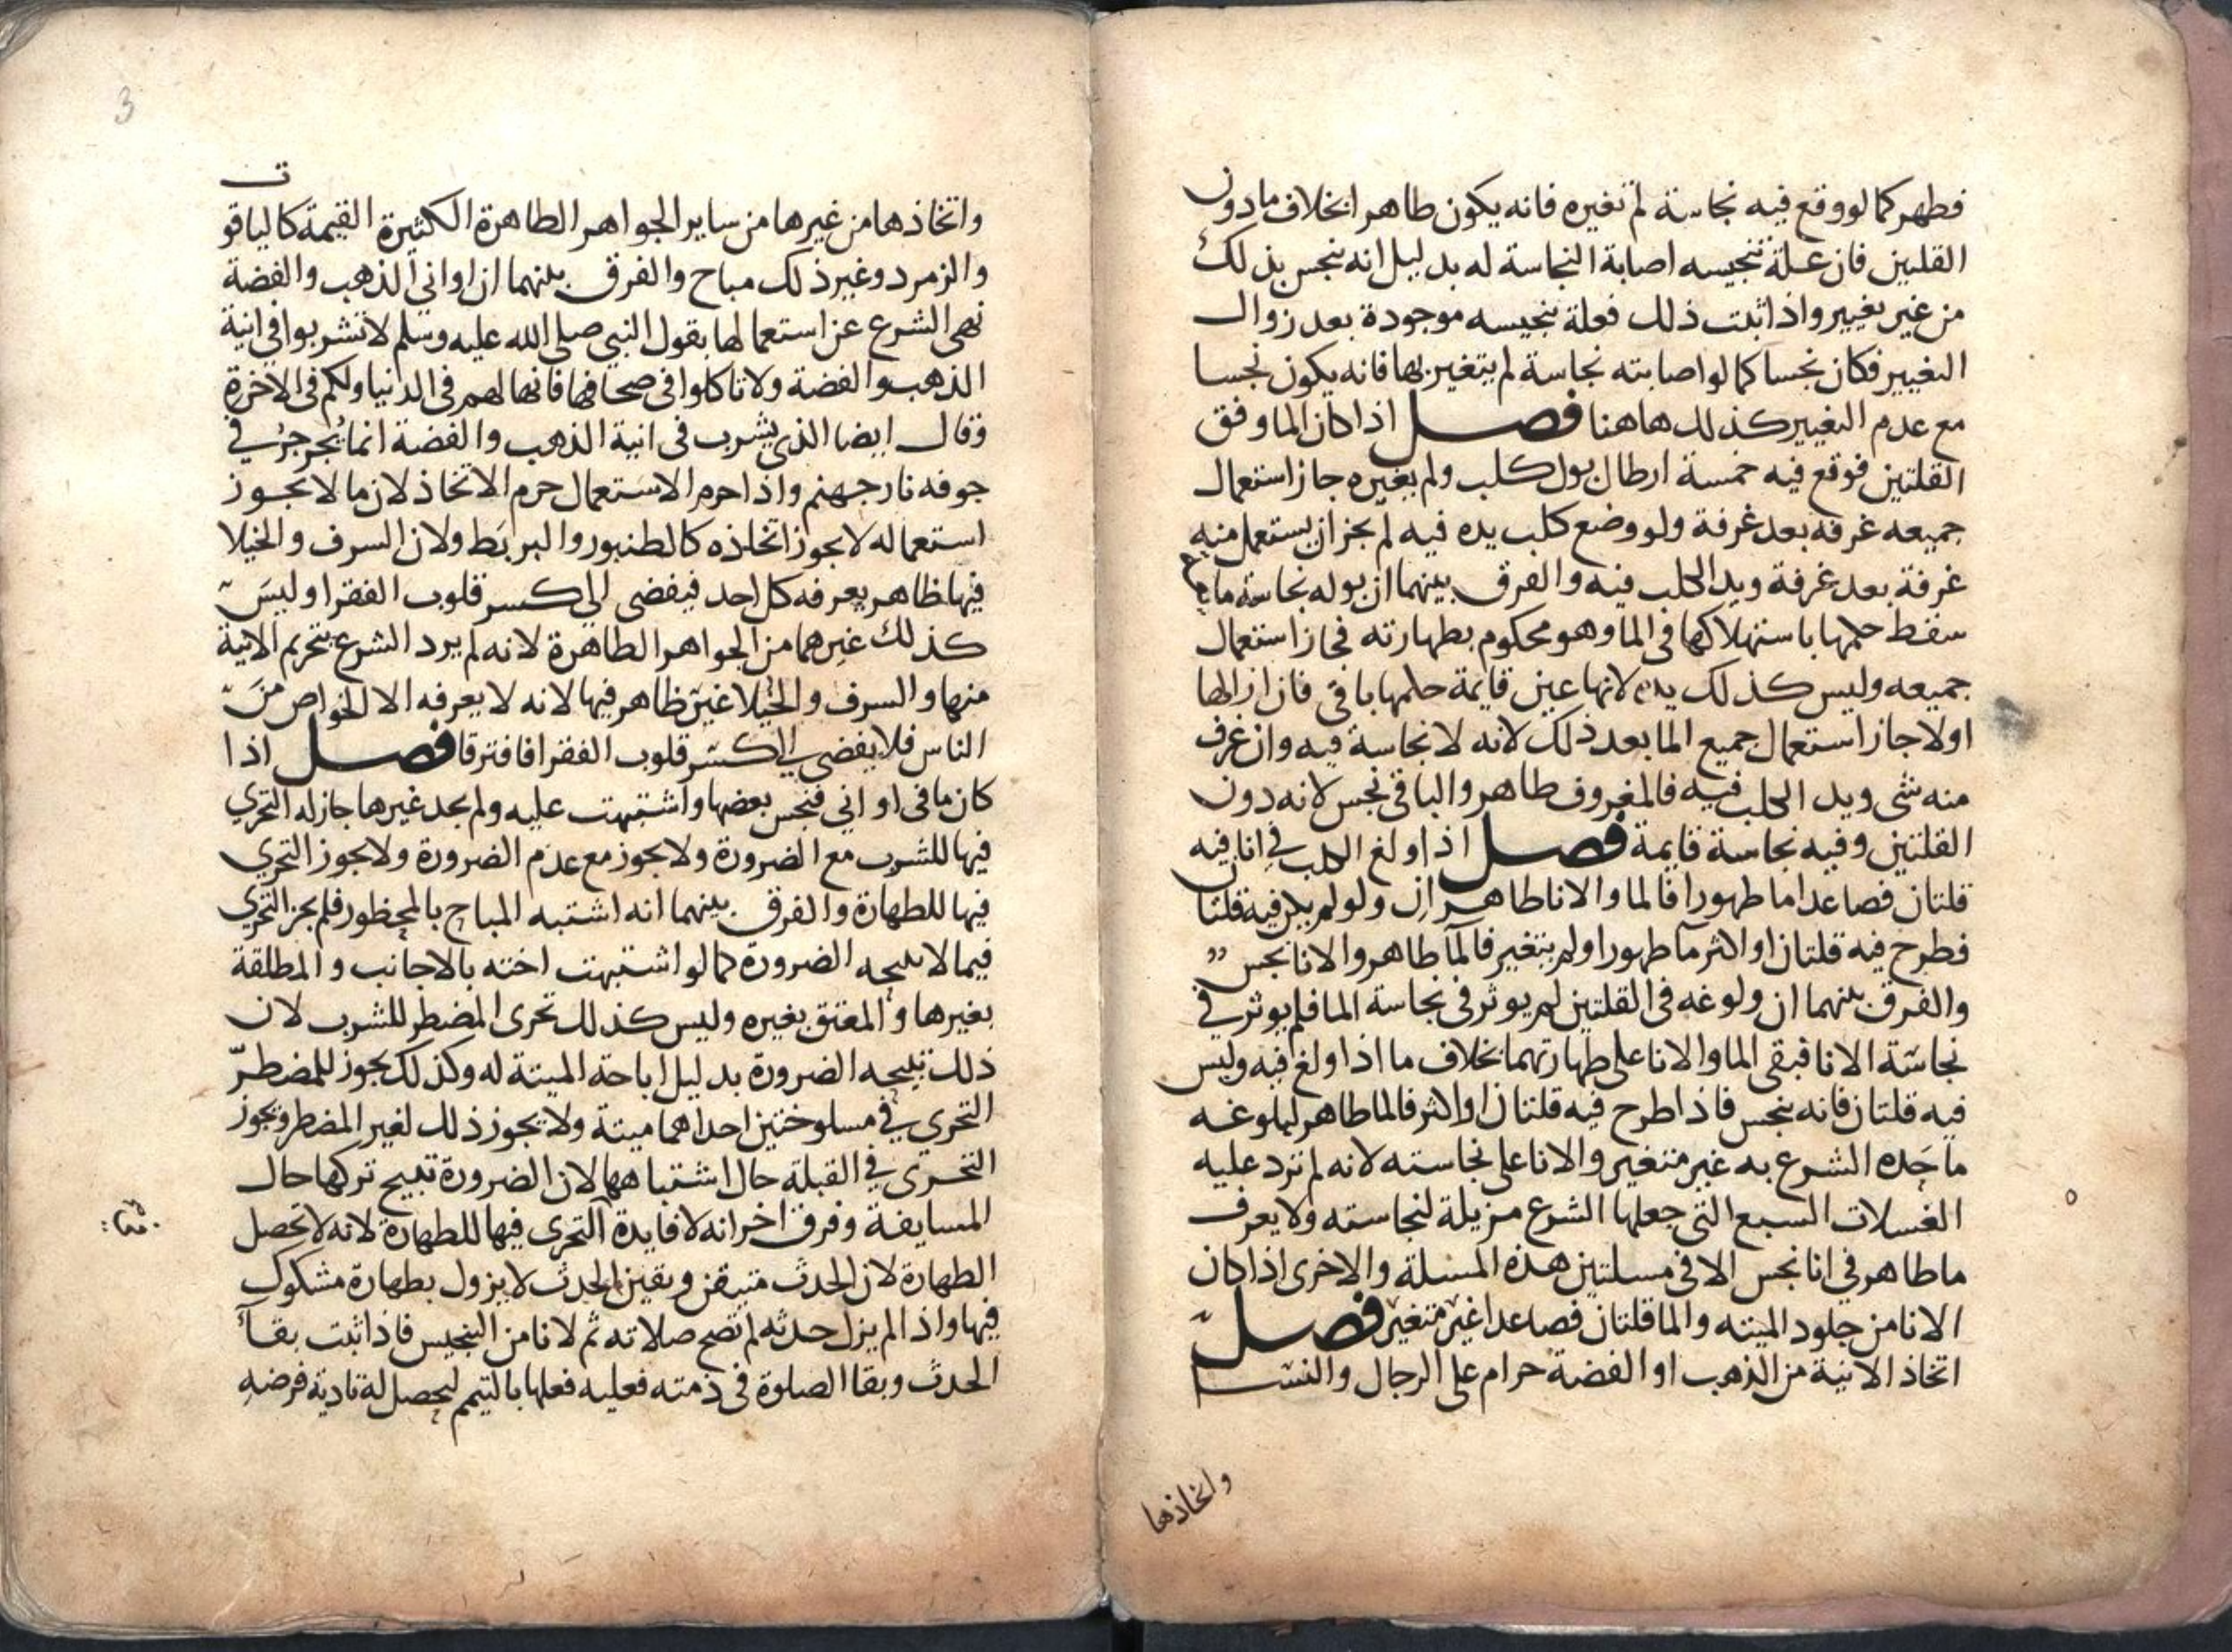 فطهر كما لو وقع فيه نجاسة لم تغيره فانه يكون طاهرا بخلاف ما دون
القلتين فان علة تنجيسه اصابة النجاسة له بدليل انه ينجس بذلك
من غير تغيير واذا ثبت ذلك فعلة تنجيسه موجودة بعد زوال
التغيير فكان نجسا كما لو اصابته نجاسة لم يتغير بها فانه يكون نجسا
مع عدم التغيير كذلك هاهنا فصل اذا كان الما وفق
القلتين فوقع فيه خمسة ارطال بول كلب ولم يغيره جاز استعمال
جميعه غرفه بعد غرفة ولو وضع كلب يده فيه لم يجز ان يستعمل منه
غرفة بعد غرفة ويد الكلب فيه والفرق بينهما ان بوله نجاسة مايعة
سقط حكمها باستهلاكها في الما وهو محكوم بطهارته فجاز استعمال
جميعه وليس كذلك يده لانها عين قايمة حكمها باقي فان ازالها
اولا جاز استعمال جميع الما بعد ذلك لانه لا نجاسة فيه وان غرف
منه شي ويد الكلب فيه فالمغروف طاهر والباقي نجس لانه دون
القلتين وفيه نجاسة قايمة فصل اذا ولغ الكلب في انا فيه
قلتان فصاعدا ما طهورا فالما والانا طاهران ولو لم يكن فيه قلتان
فطرح فيه قلتان او اكثر مآ طهورا ولم يتغير فالمآ طاهر والانا نجس
والفرق بينهما ان ولوغه في القلتين لم يوثر في نجاسة الما فلم يوثر في
نجاسة الانا فبقى الما والانا على طهارتهما بخلاف ما اذا ولغ فيه وليس
فيه قلتان فانه ينجس فاذا طرح فيه قلتان او اكثر فالما طاهر لبلوغه
ما حَده الشرع به غير متغير والانا على نجاسته لانه لم ترد عليه
الغسلات السبع التي جعلها الشرع مزيلة لنجاسته ولا يعرف
ما طاهر في انا نجس الا في مسلتين هذه المسلة والاخرى اذا كان
الانا من جلود الميته والما قلتان فصاعدا غير متغير فصل
اتخاذ الانية من الذهب او الفضة حرام على الرجال والنسا
واتخاذها
3
واتخاذها من غيرها من ساير الجواهر الطاهرة الكثيرة القيمة كالياقوت
والزمرد وغير ذلك مباح والفرق بينهما ان اواني الذهب والفضة
نهى الشرع عن استعمالها بقول النبي صلى الله عليه وسلم لا تشربوا في انية
الذهب والفضة ولا تاكلوا في صحافها فانها لهم في الدنيا ولكم في الاخرة
وقال ايضا الذي يشرب في انية الذهب والفضة انما يُجرجرُ في
جوفه نار جهنم واذا حرم الاستعمال حرم الاتخاذ لان ما لا يجوز
استعماله لا يجوز اتخاذه كالطنبور والبربَط ولان السرف والخيلا
فيها ظاهر يعرفه كل احد فيفضى الى كسر قلوب الفقرا وليس
كذلك غيرهما من الجواهر الطاهرة لانه لم يرد الشرع بتحريم الانية
منها والسرف والخُيلا غير ظاهر فيها لانه لا يعرفه الا الخواص من
الناس فلا يفضي الى كسر قلوب الفقرا فافترقا فصل اذا
كان ما في اواني فنجس بعضها واشتبهت عليه ولم يجد غيرها جاز له التحري
فيها للشرب مع الضرورة ولا يجوز مع عدم الضرورة ولا يجوز التحري
فيها للطهارة والفرق بينهما انه اشتبه المباح بالمحظور فلم يجز التحري
فيما لا تبيحه الضرورة كما لو اشتبهت اخته بالاجانب والمطلقة
بغيرها والمعتق بغيره وليس كذلك تحرى المضطر للشرب لان
ذلك تبيحه الضرورة بدليل اباحة الميتة له وكذلك يجوز للمضطرّ
التحري في مسلوختين احداهما ميتة ولا يجوز ذلك لغير المضطر ويجوز
التحرى في القبلة حال اشتباهها لان الضرورة تبيح تركها حال
المسايفة وفرق اخر انه لا فايدة التحرى فيها للطهارة لانه لا تحصل
الطهارة لان الحدث متيقن ويقين الحدث لا يزول بطهارة مشكوك
فيها واذا لم يزل حدثه لم تصح صلاته ثم لا نامن التنجيس فاذا ثبت بقآ
الحدث وبقا الصلوة في ذمته فعليه فعلها بالتيمم ليحصل له تادية فرضه